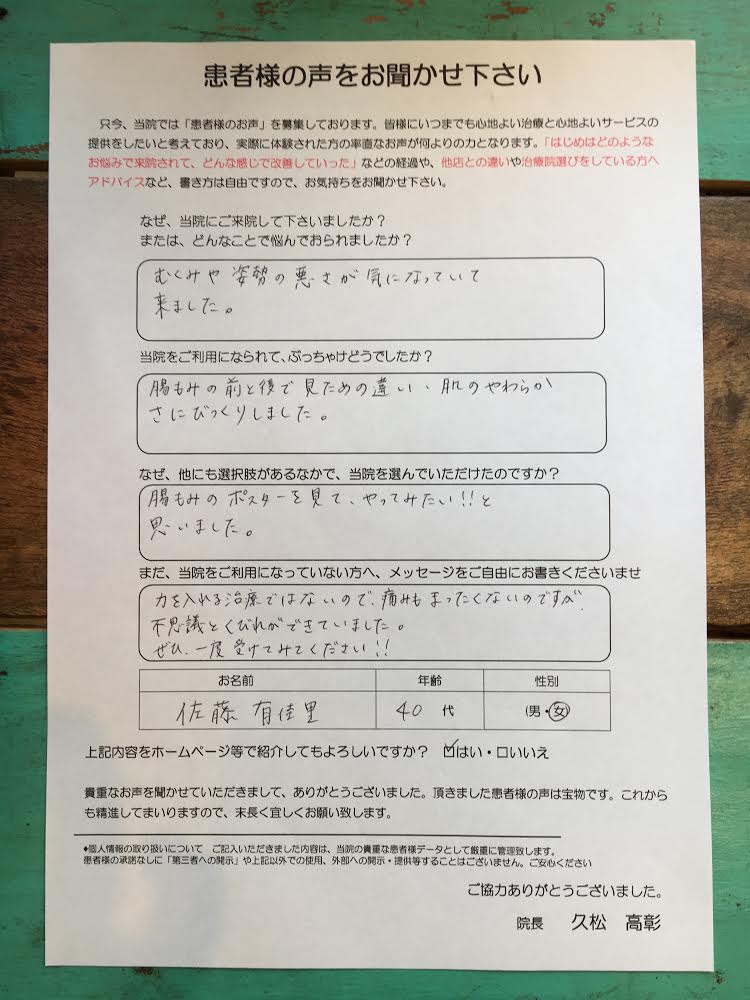 患者様の声をお聞かせ下さい
只今、当院では「患者様のお声」を募集しております。皆様にいつまでも心地よい治療と心地よいサービスの
提供をしたいと考えており、実際に体験された方の率直なお声が何よりの力となります。「はじめはどのような
お悩みで来院されて、どんな感じで改善していった」などの経過や、他店との違いや治療院選びをしている方へ
アドバイスなど、書き方は自由ですので、お気持ちをお聞かせ下さい。
なぜ、当院にご来院して下さいましたか？
または、どんなことで悩んでおられましたか？
むくみや姿勢の悪さが気になっていて
来ました。
当院をご利用になられて、ぶっちゃけどうでしたか？
腸もみの前と後で見ための違い、肌のやわらか
さにびっくりしました。
なぜ、他にも選択肢があるなかで、当院を選んでいただけたのですか？
腸もみのポスターを見て、やってみたい!!と
思いました。
まだ、当院をご利用になっていない方へ、メッセージをご自由にお書きくださいませ
力を入れる治療ではないので、痛みもまったくないのですが、
不思議とくびれができていました。
ぜひ、一度受けてみてください!!
お名前 年齢 性別
佐藤 有佳里 40 代 (男・女)
上記内容をホームページ等で紹介してもよろしいですか？ ☑はい・□いいえ
貴重なお声を聞かせていただきまして、ありがとうございました。頂きました患者様の声は宝物です。これから
も精進してまいりますので、末長く宜しくお願い致します。
♦個人情報の取り扱いについて ご記入いただきました内容は、当院の貴重な患者様データとして厳重に管理致します。
患者様の承諾なしに「第三者への開示」や上記以外での使用、外部への開示・提供等することはございません。ご安心ください
ご協力ありがとうございました。
院長 久松 高彰